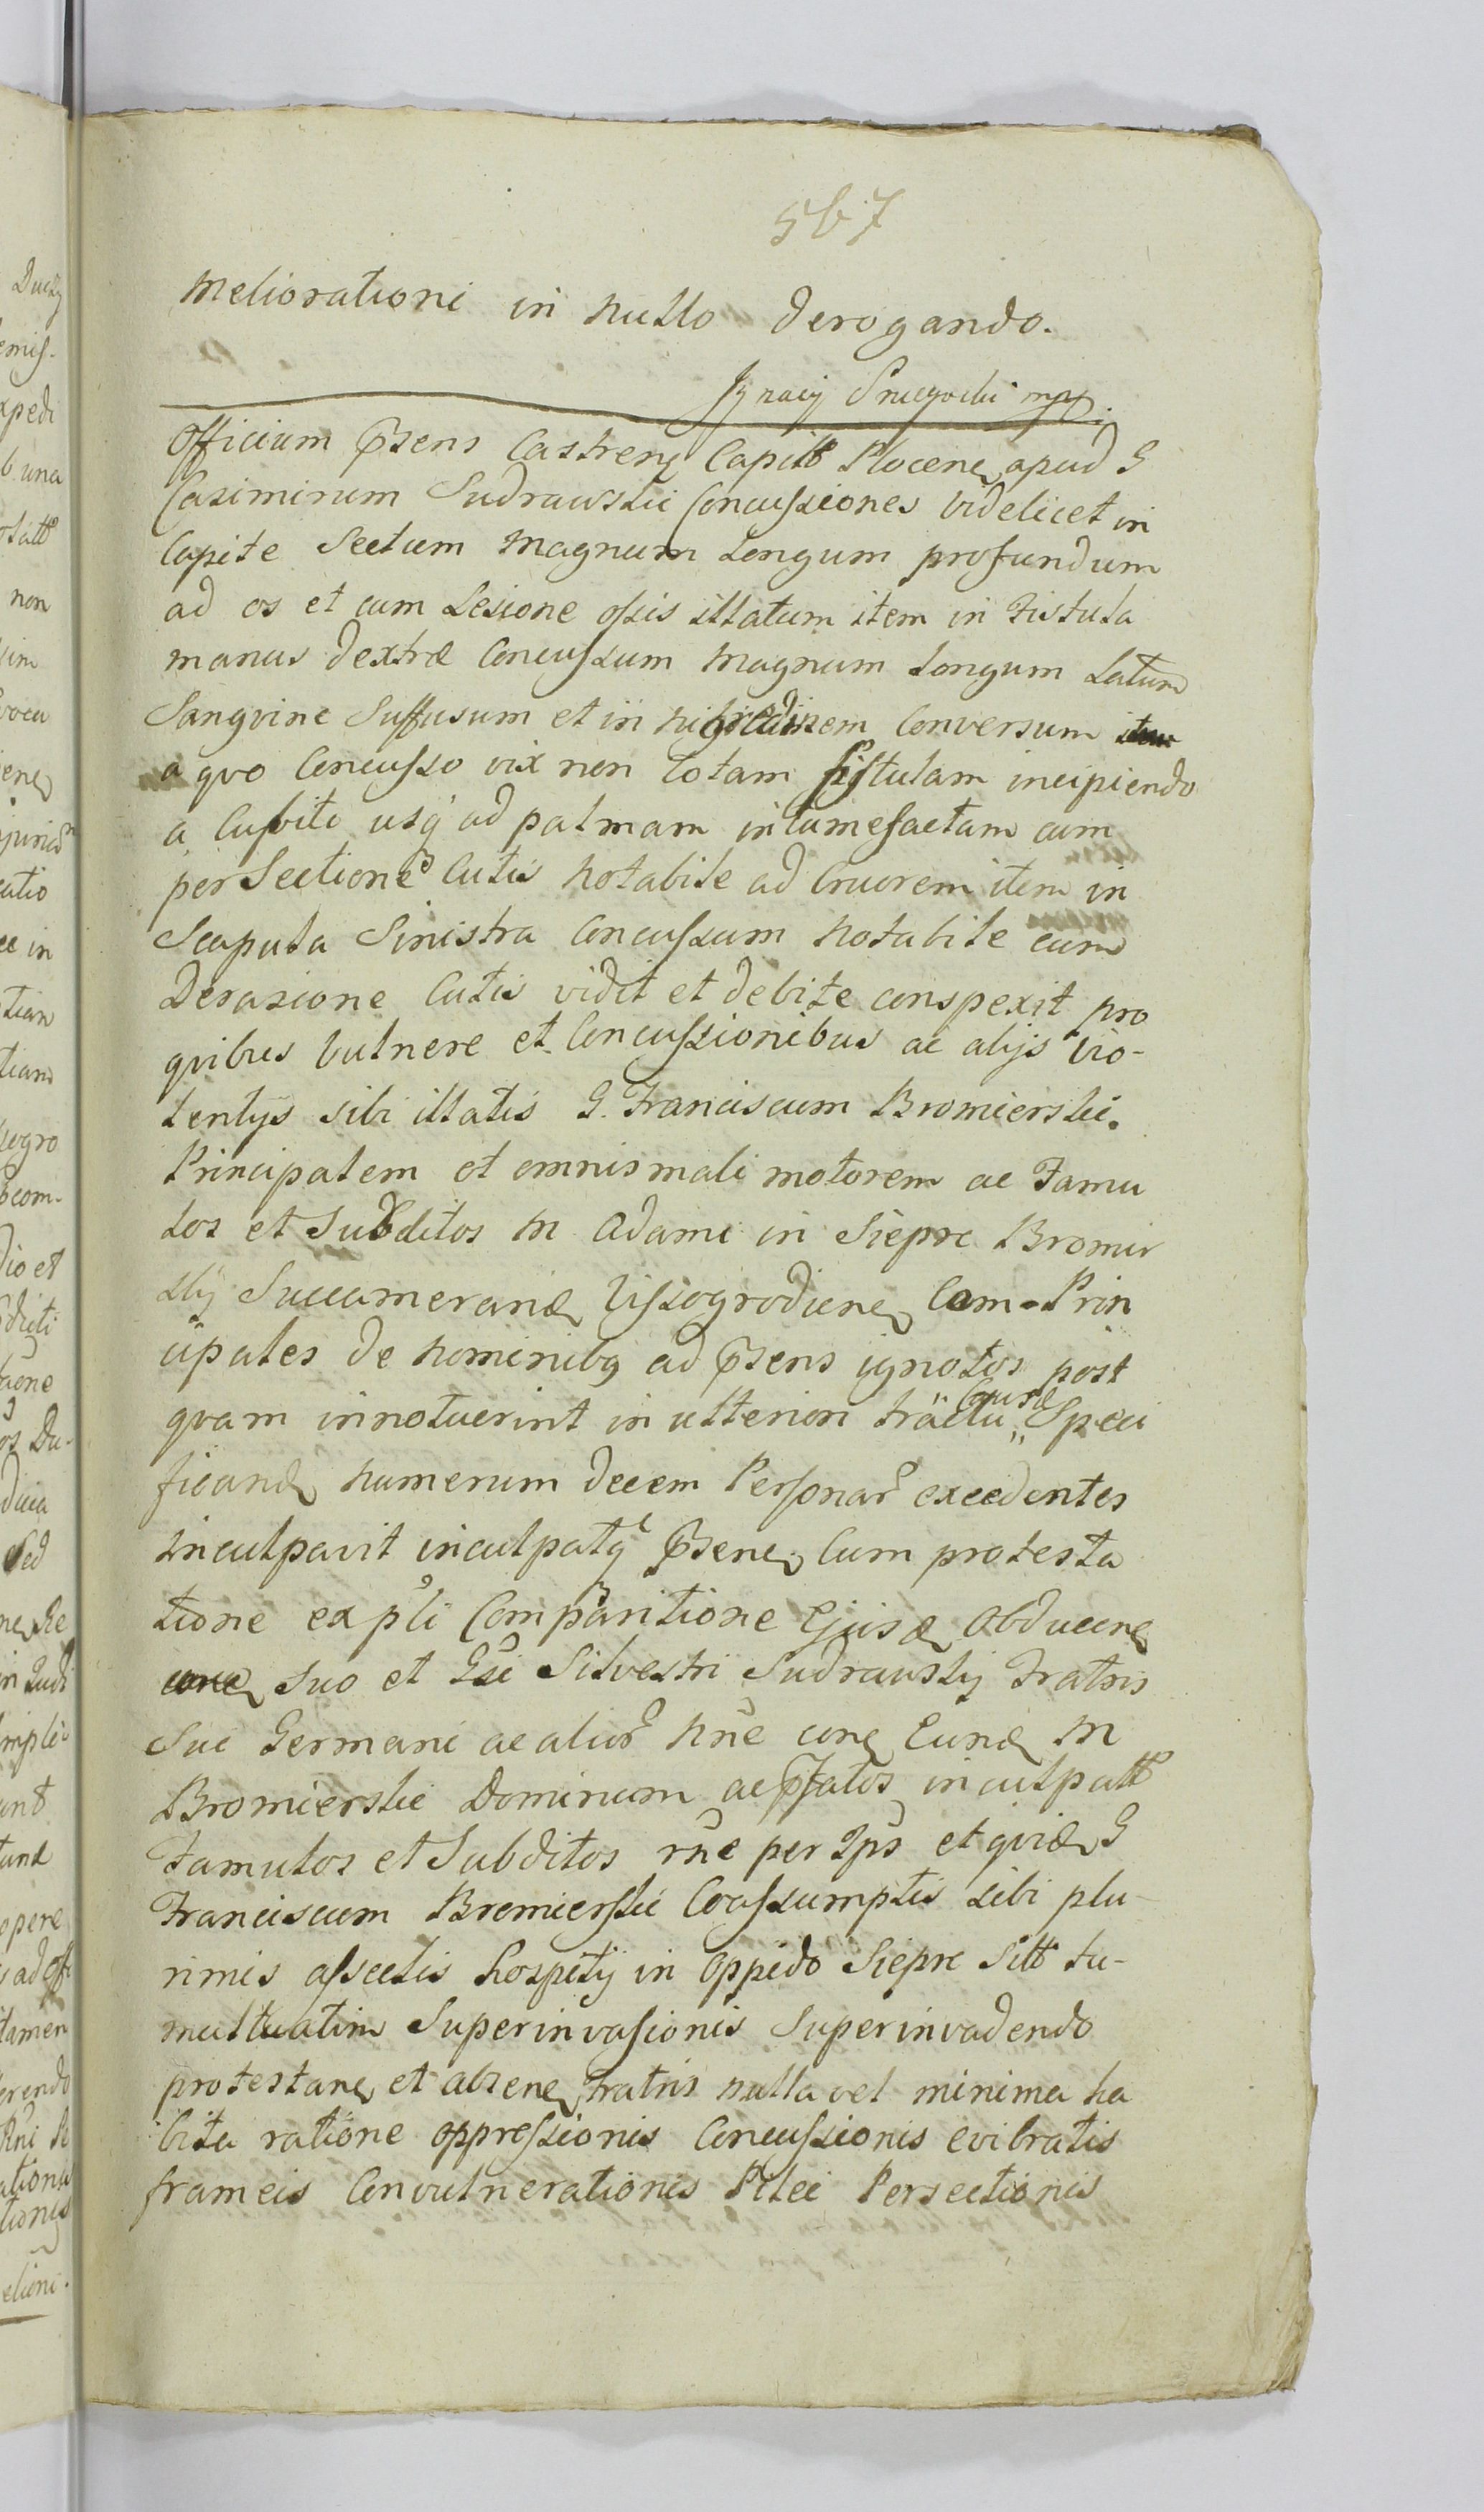 567
Meliorationi in nullo derogando.
Ignacy mp.
Officium p̃sens Castrense Capitle Plocense apud G
Casimirum Sudrawski Concussiones videlicet in
Capite Sectum Magnum Longum profundum
ad os et cum Lesione ossis illatum item in Fistula
manus dextræ Concussum Magnum Longum Latum
Sangvine Suffusum et in nigredinem Conversum
a qvo Concusso vix non totam fistulam incipiendo
a Cubito usq ad palmam intumefactam cum
per Sectione Cutis Notabile ad Cruorem item in
Scapula Sinistra Concussum Notabile cum
Derasione Cutis vidit et debite conspexit pro
qvibus vulnere et Concussionibus ac alijs vio-
lentijs sibi illatis G. Franciscum Bromierski
Principalem et omnis mali motorem ac Famu
los et Subditos M Adami in Sieprc Bromir
skij Succamerarid Vissogrodiene Com-Prin
cipales de nominibq ad p̃sens ignotos post
qvam innotuerint in ulteriori träctu Caused Speci
ficand numerum decem Personar excedentes
inculpavit inculpatq p̃sene Cum protesta
tione ex pli Comparitione Ejusd Obducene
suo et Gsi Silvestri Sudrawskij Fratris
Sui Germani ac alior Nne cone Eund M
Bromierski Dominum ac p̃fatos inculpatt
Famulos et Subditos rne per Ips et qvid G
Franciscum Bromierski Coassumptis sibi plu-
rimis asseclis hospitij in oppido Sieprc Sitt tu-
multuatim Superinvasionis Superinvadendo
protestane et absene Fratris nulla vel minima ha
bita ratione oppressionis Concussionis evibratis
frameis Convulnerationis Pilei Persectionis